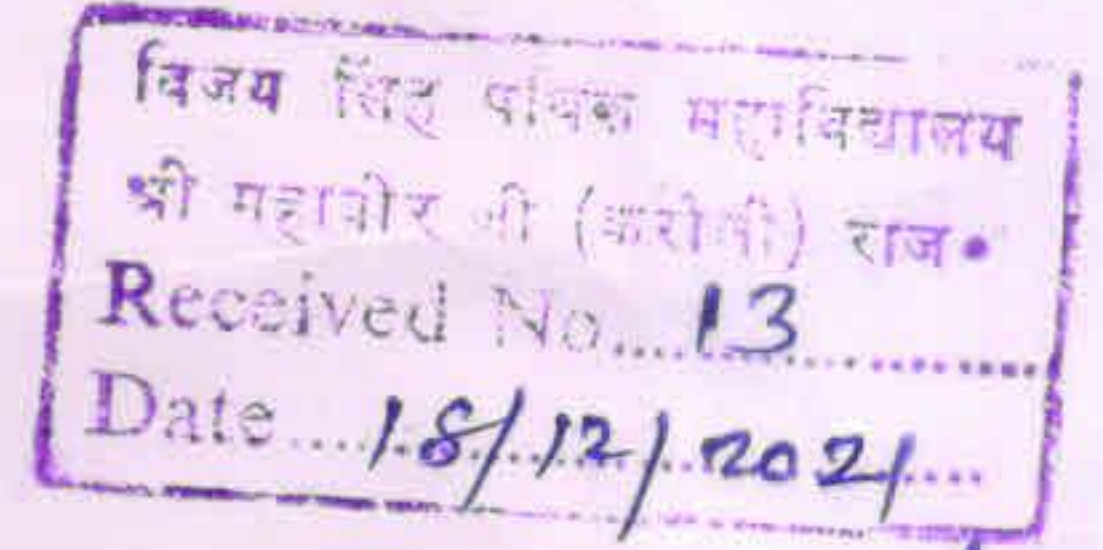 विजय सिंह पथिक महाविद्यालय
श्री महावीर जी (करौली) राज॰
Received No....13............
Date....18/12/2021....